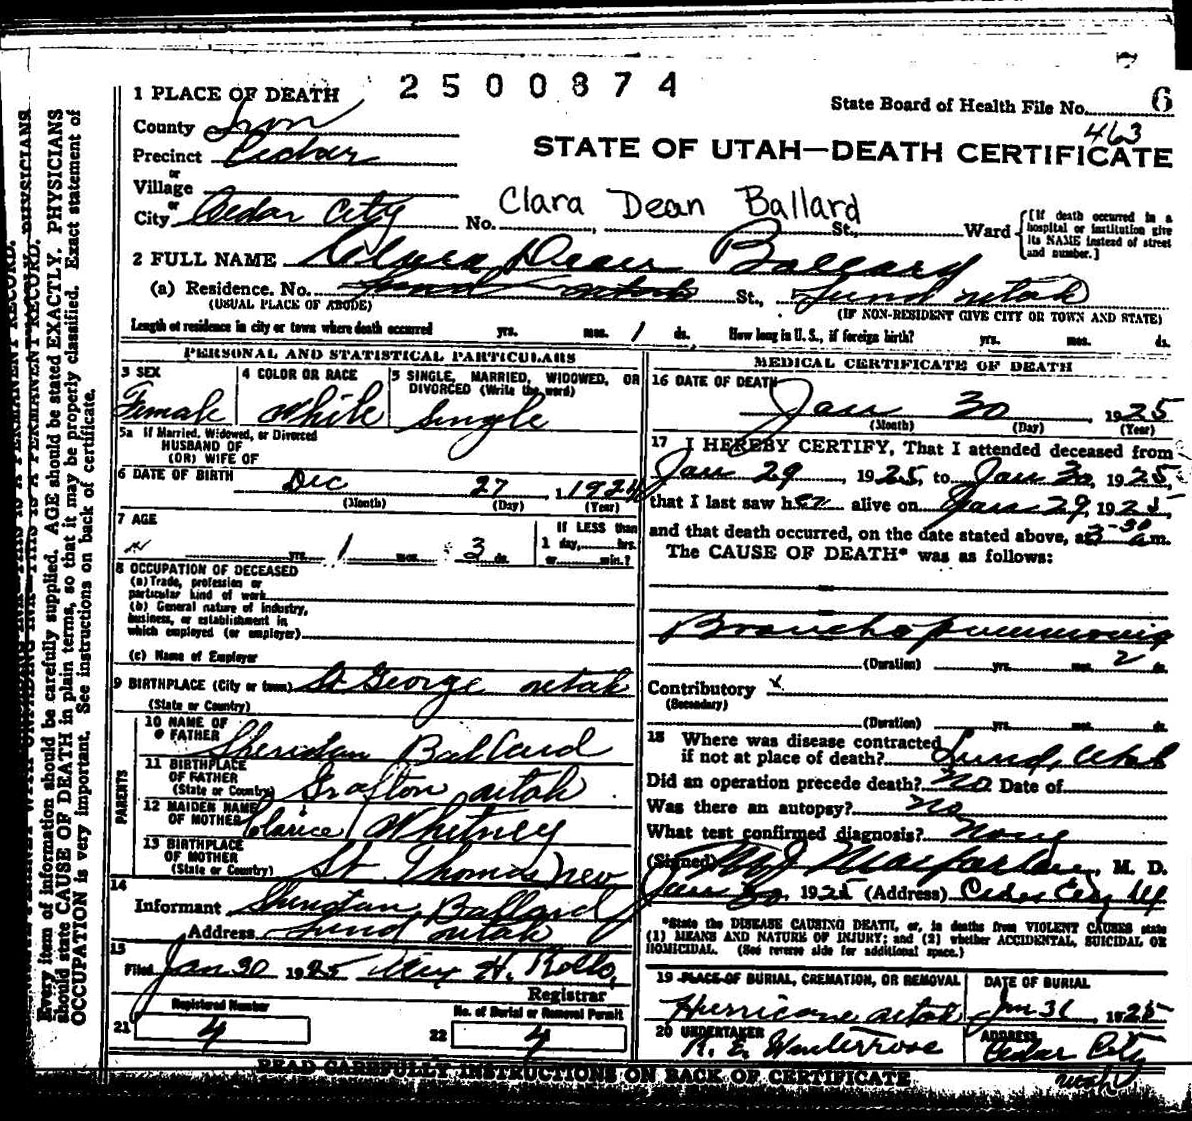 7
2500874
1 PLACE OF DEATH
State Board of Health File No. 6
463
County Iron
STATE OF UTAH—DEATH CERTIFICATE
Precinct Cedar
or
Village
or
City Cedar City No. St., Ward
Clara Dean Ballard
{If death occurred in a
hospital or institution give
its NAME instead of street
and number.}
2 FULL NAME Clara Dean Ballard
(a) Residence. No. Lund Utah St., Lund Utah
(USUAL PLACE OF ABODE) (IF NON-RESIDENT GIVE CITY OR TOWN AND STATE)
Length of residence in city or town where death occurred yrs. mos. 1 ds. How long in U. S., if foreign birth? yrs. mos. ds.
PERSONAL AND STATISTICAL PARTICULARS
3 SEX 4 COLOR OR RACE 5 SINGLE, MARRIED, WIDOWED, OR
DIVORCED (Write the word)
Female White Single
5a If Married, Widowed, or Divorced
HUSBAND OF
(OR) WIFE OF
6 DATE OF BIRTH Dec 27, 1924
(Month) (Day) (Year)
7 AGE If LESS than
yrs. 1 mos. 3 ds. 1 day, hrs.
or min.?
8 OCCUPATION OF DECEASED
(a) Trade, profession or
particular kind of work
(b) General nature of industry,
business, or establishment in
which employed (or employer)
(c) Name of Employer
9 BIRTHPLACE (City or town) St George Utah
(State or Country)
PARENTS
10 NAME OF
FATHER Sheridan Ballard
11 BIRTHPLACE
OF FATHER
(State or Country) Grafton Utah
12 MAIDEN NAME
OF MOTHER Clarice Whitney
13 BIRTHPLACE
OF MOTHER
(State or Country) St. Thomas Nev
14
Informant Sheridan Ballard
Address Lund Utah
15
Filed Jan 30 1925 Alex H. Rollo,
Registrar
Registered Number No. of Burial or Removal Permit
21 4 22 4
MEDICAL CERTIFICATE OF DEATH
16 DATE OF DEATH
Jan 30 1925
(Month) (Day) (Year)
17 I HEREBY CERTIFY, That I attended deceased from
Jan 29, 1925, to Jan 30, 1925,
that I last saw her alive on Jan 29, 1925,
and that death occurred, on the date stated above, at 3-30 a m.
The CAUSE OF DEATH* was as follows:
Broncho pneumonia
(Duration) yrs. mos. 2 ds.
Contributory x
(Secondary)
(Duration) yrs. mos. ds.
18 Where was disease contracted
if not at place of death? Lund, Utah
Did an operation precede death? No Date of
Was there an autopsy? No
What test confirmed diagnosis? None
(Signed) M J Macfarlane, M. D.
Jan 30, 1925 (Address) Cedar City Ut
*State the DISEASE CAUSING DEATH, or, in deaths from VIOLENT CAUSES state
(1) MEANS AND NATURE OF INJURY; and (2) whether ACCIDENTAL, SUICIDAL OR
HOMICIDAL. (See reverse side for additional space.)
19 PLACE OF BURIAL, CREMATION, OR REMOVAL DATE OF BURIAL
Hurricane Utah Jan 31, 1925
20 UNDERTAKER ADDRESS
R. E. Winterrose Cedar City
Utah
READ CAREFULLY INSTRUCTIONS ON BACK OF CERTIFICATE
Every item of information should be carefully supplied. AGE should be stated EXACTLY. PHYSICIANS
should state CAUSE OF DEATH in plain terms, so that it may be properly classified. Exact statement of
OCCUPATION is very important. See instructions on back of certificate.